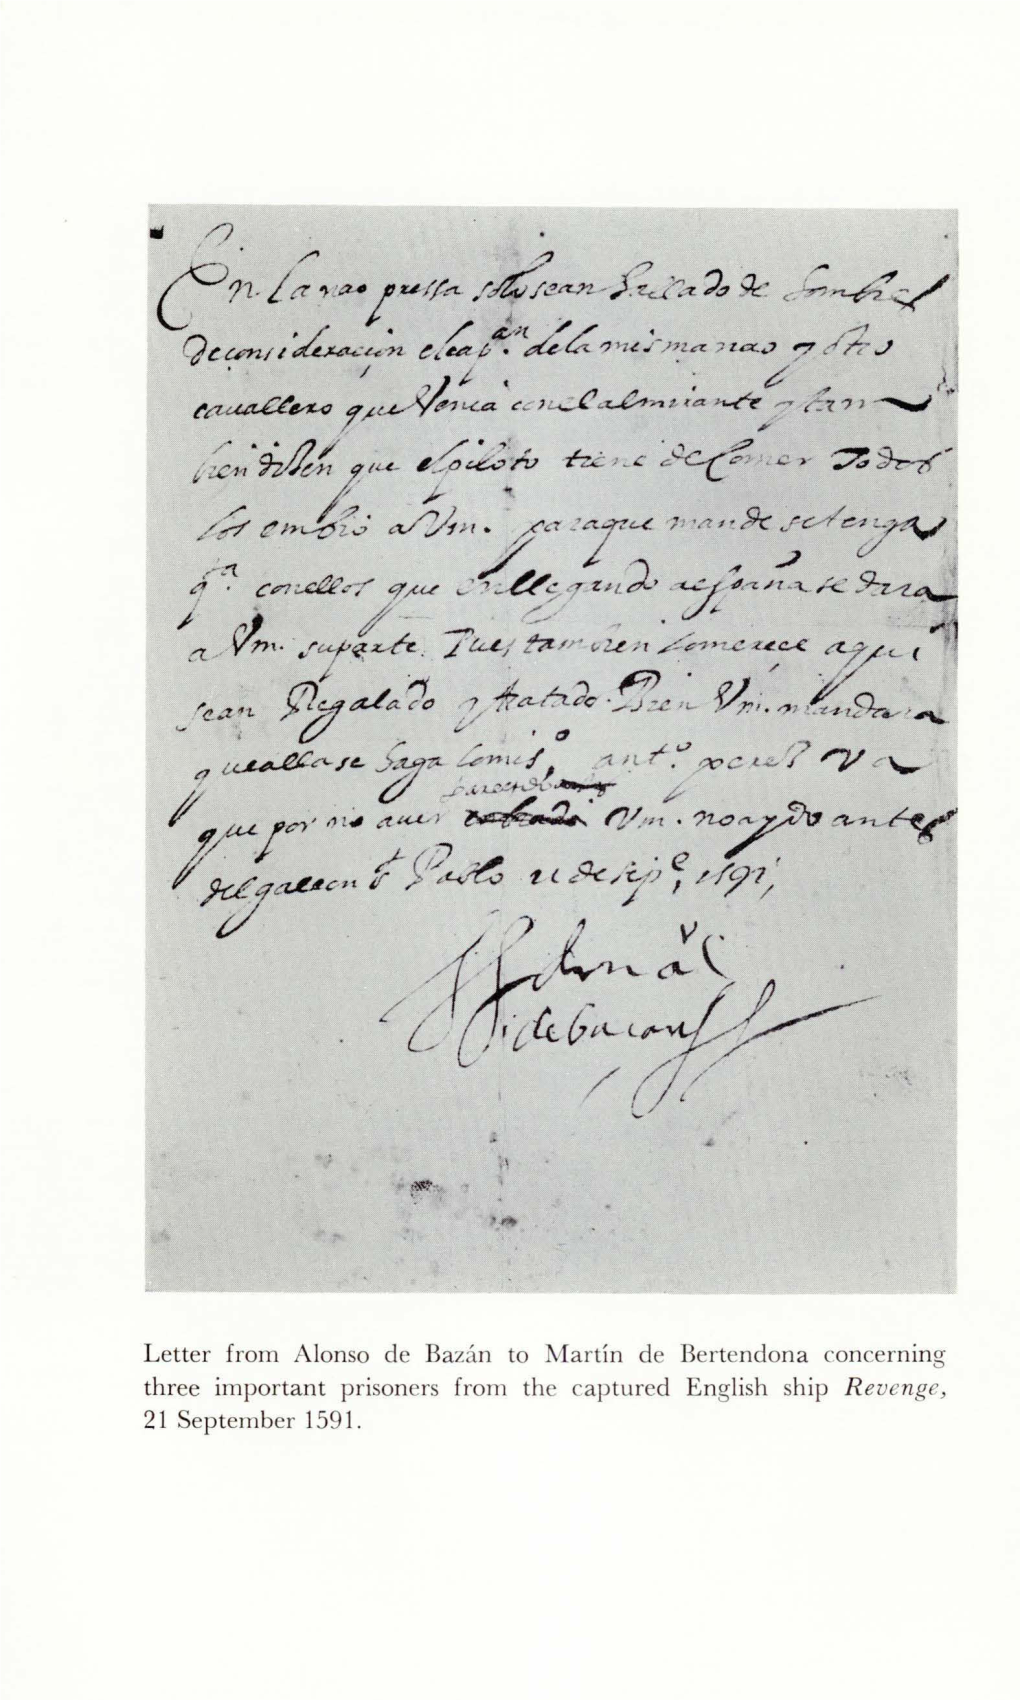 En la nao pressa solo sean hallado de hombres
deconsideraçion elcapan. dela misma nao y otro
cauallero que Venia conelalmirante y tam
bien diSen que elpiloto tiene decomer Todos
los embio a Vm. paraque mande setenga
qta. conellos que enllegando aespaña se dara
a Vm. suparte. Pues tambien lomereçe aqui
sean Regalado y tratado. Bien Vm. mandara
quealla se haga lomiso, anto. pereS va
que por no auer Vm. no a ydo antes
delgaleon st Pablo 21 de sepe, 1591,
don alº
debacan
Letter from Alonso de Bazán to Martín de Bertendona concerning
three important prisoners from the captured English ship Revenge,
21 September 1591.